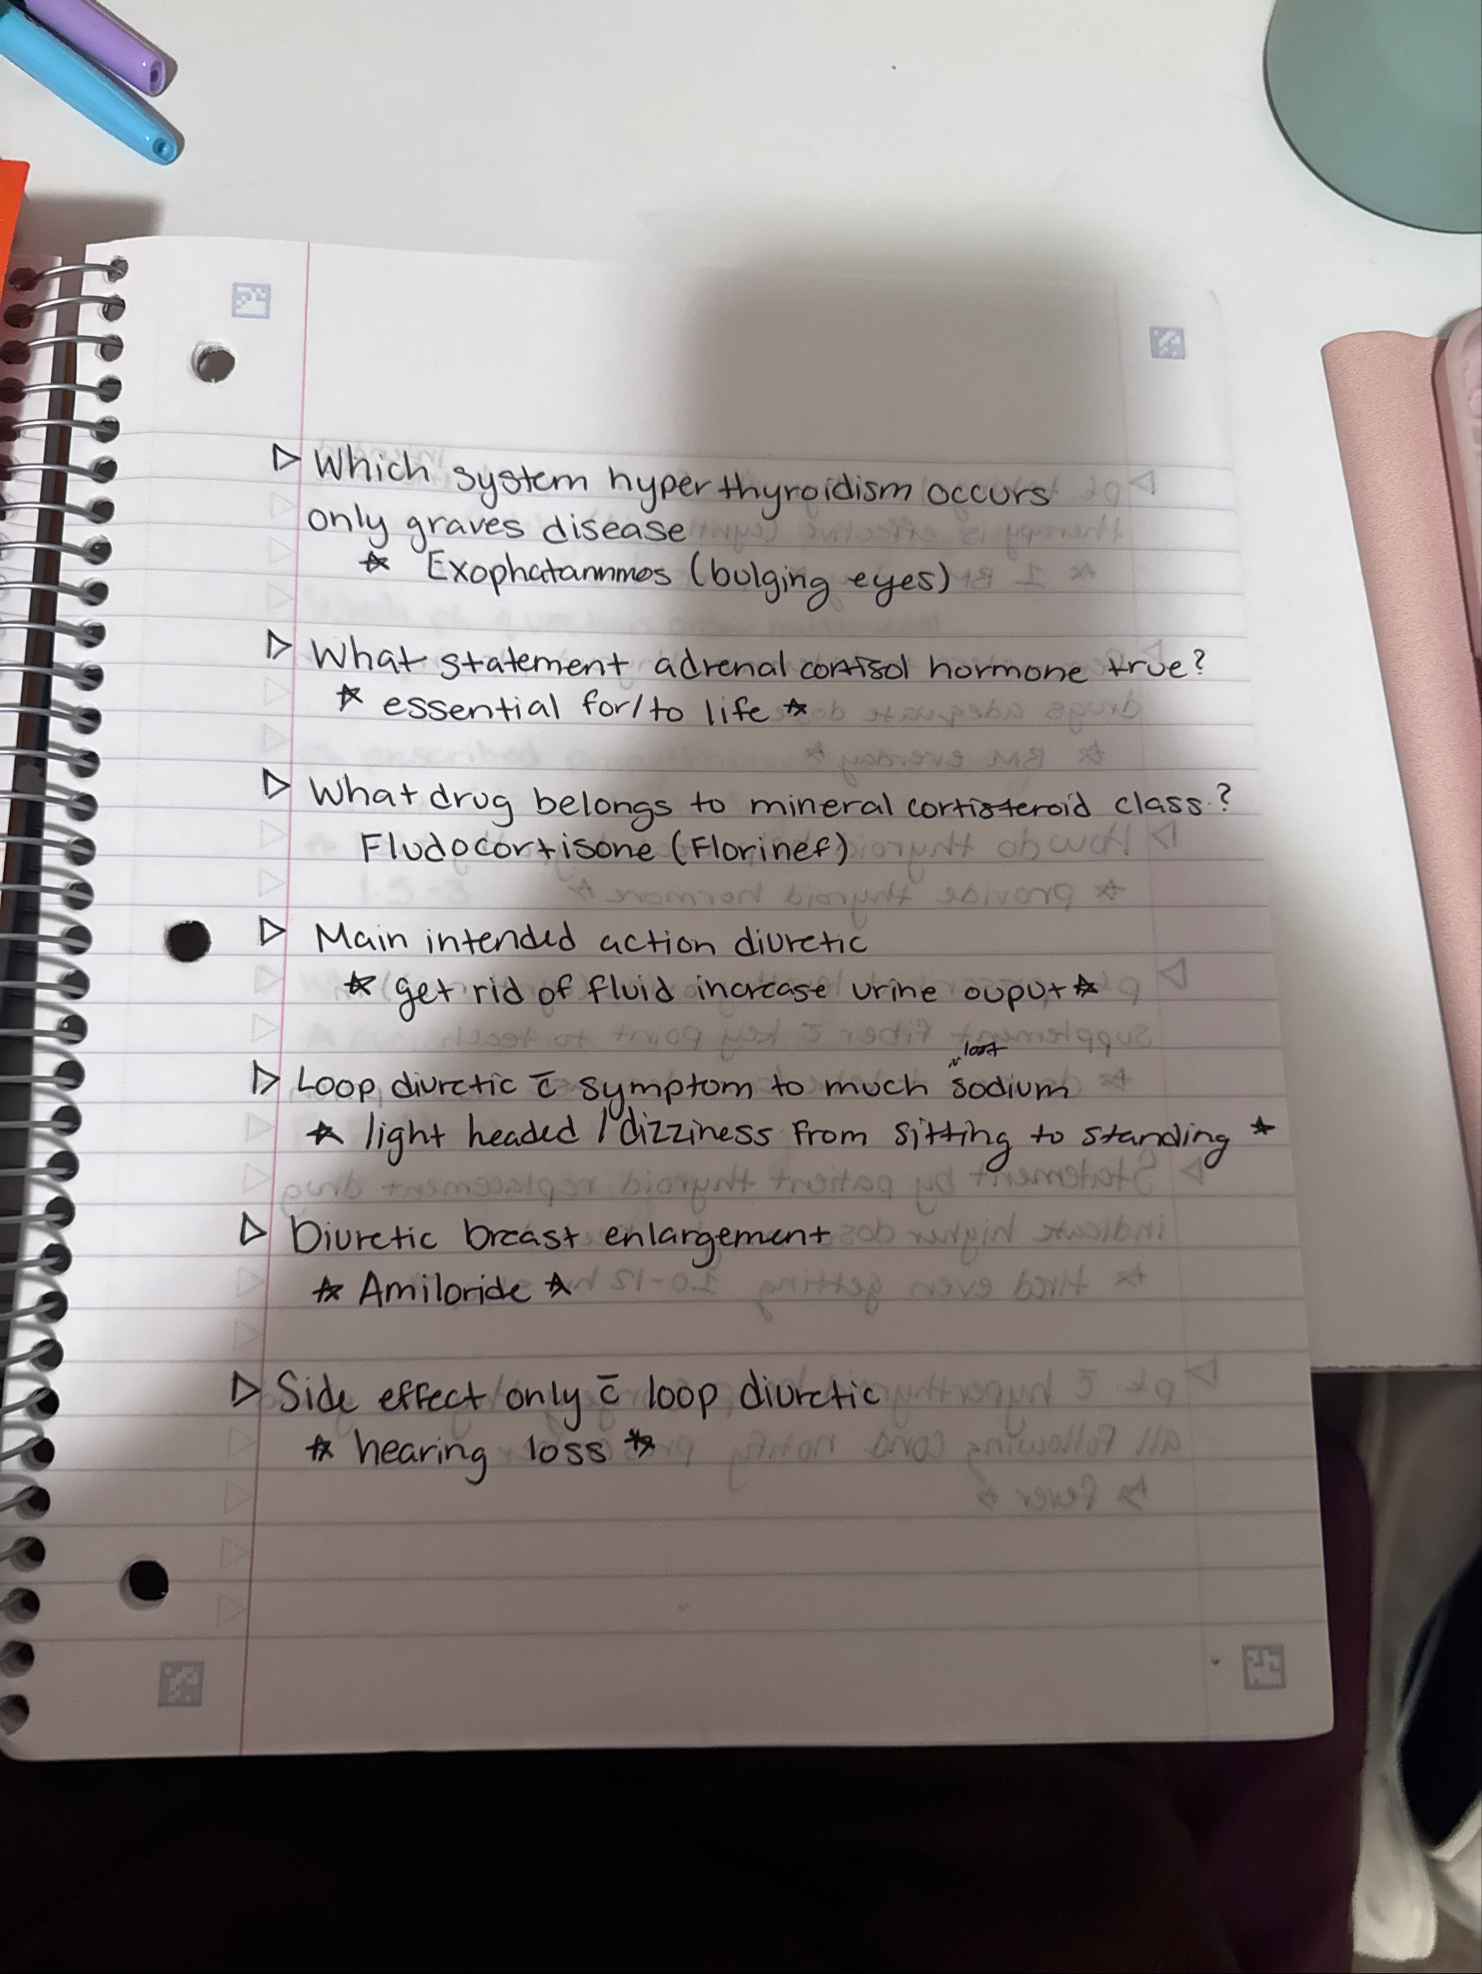 ▷ Which system hyperthyroidism occurs
only graves disease
☆ Exophatammos (bulging eyes)
▷ What statement adrenal cortisol hormone true?
☆ essential for/to life ☆
▷ What drug belongs to mineral cortisteroid class?
Fludocortisone (Florinef)
▷ Main intended action diuretic
☆ get rid of fluid increase urine ouput ☆
lost
▷ Loop diuretic c̄ symptom to much sodium
☆ light headed / dizziness from sitting to standing ☆
▷ Diuretic breast enlargement
☆ Amiloride ☆
▷ Side effect only c̄ loop diuretic
☆ hearing loss ☆